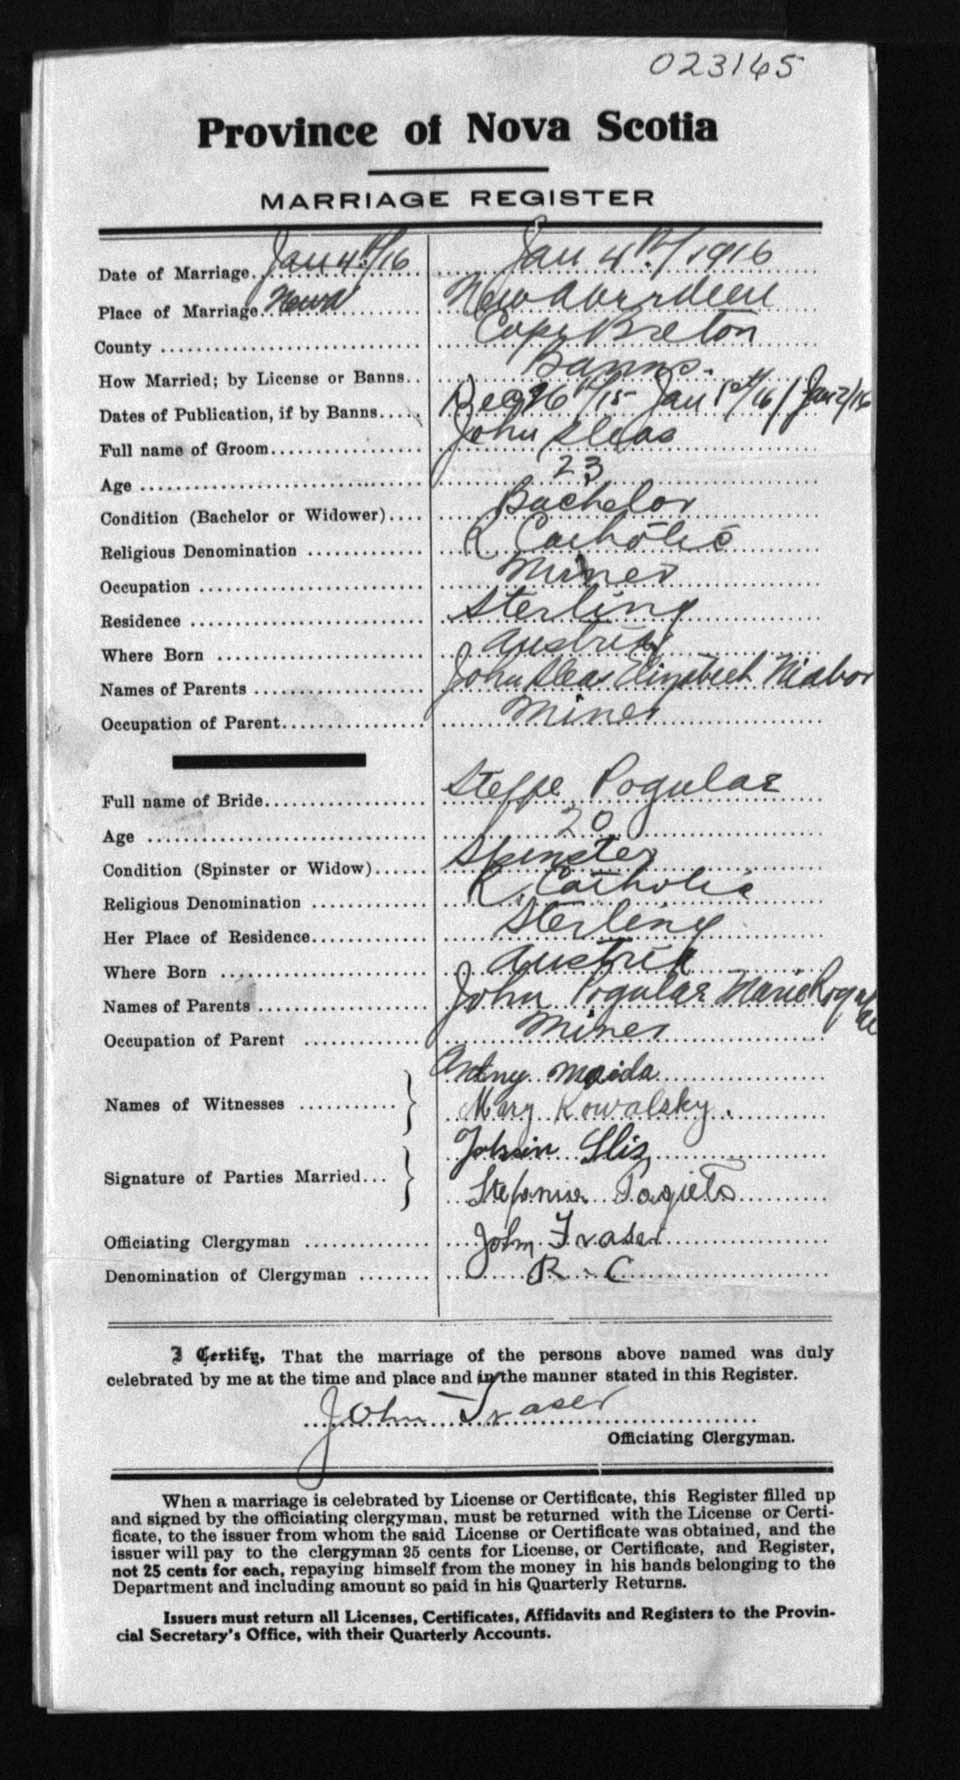 023165
Province of Nova Scotia
MARRIAGE REGISTER
Date of Marriage Jan 4th/16 Jan 4th/1916
Place of Marriage Newa New Aberdeen
County Cape Breton
How Married; by License or Banns Banns.
Dates of Publication, if by Banns Dec 26th/15 Jan 1st/16 / Jan 2/16
Full name of Groom John Sleas
Age 23
Condition (Bachelor or Widower) Bachelor
Religious Denomination R Catholic
Occupation Miner
Residence Sterling
Where Born Austria
Names of Parents John Sleas Elizabeth Niabor
Occupation of Parent Miner
Full name of Bride Steffe Pogular
Age 20
Condition (Spinster or Widow) Spinster
Religious Denomination R. Catholic
Her Place of Residence Sterling
Where Born Austria
Names of Parents John Pogular Marie
Occupation of Parent Miner
Names of Witnesses Antny Maida
Mary Kowalsky.
Signature of Parties Married Sliz
Officiating Clergyman John Fraser
Denomination of Clergyman R. C
I Certify, That the marriage of the persons above named was duly
celebrated by me at the time and place and in the manner stated in this Register.
John Fraser
Officiating Clergyman.
When a marriage is celebrated by License or Certificate, this Register filled up
and signed by the officiating clergyman, must be returned with the License or Certi-
ficate, to the issuer from whom the said License or Certificate was obtained, and the
issuer will pay to the clergyman 25 cents for License, or Certificate, and Register,
not 25 cents for each, repaying himself from the money in his hands belonging to the
Department and including amount so paid in his Quarterly Returns.
Issuers must return all Licenses, Certificates, Affidavits and Registers to the Provin-
cial Secretary's Office, with their Quarterly Accounts.